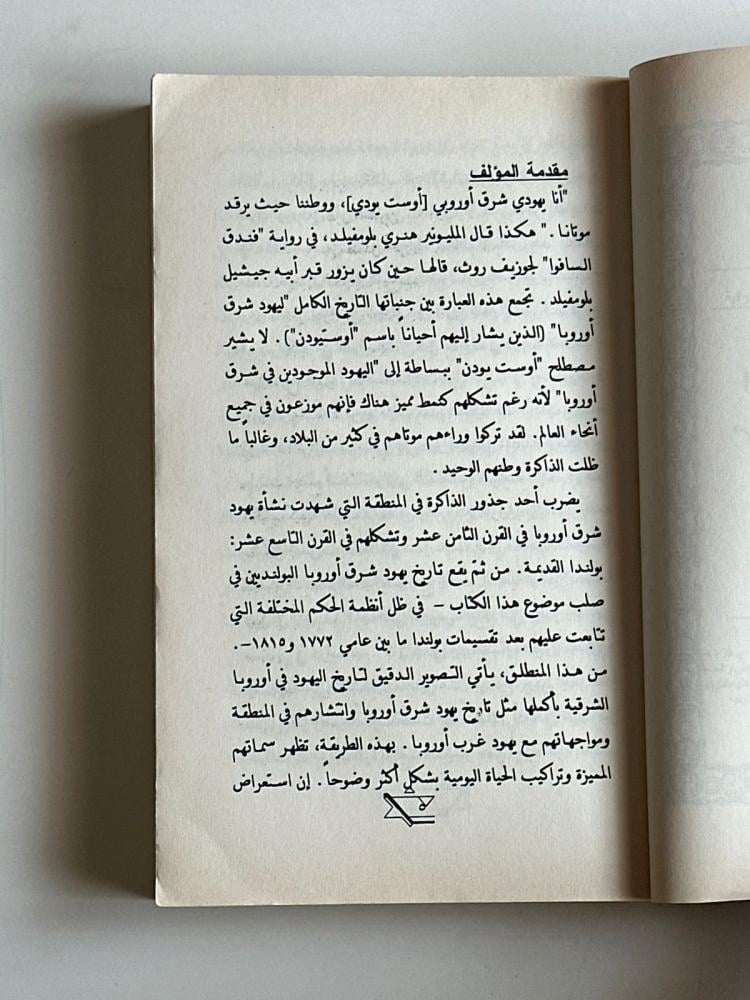 مقدمة المؤلف
"أنا يهودي شرق أوروبي [أوست يودي]، ووطننا حيث يرقد
موتانا." هكذا قال المليونير هنري بلومفيلد، في رواية "فندق
السافوا" لجوزيف روث، قالها حين كان يزور قبر أبيه جيشيل
بلومفيلد. تجمع هذه العبارة بين جنباتها التاريخ الكامل "ليهود شرق
أوروبا" (الذين يشار إليهم أحياناً باسم "أوستيودن"). لا يشير
مصطلح "أوست يودن" ببساطة إلى "اليهود الموجودين في شرق
أوروبا" لأنه رغم تشكلهم كنمط مميز هناك فإنهم موزعون في جميع
أنحاء العالم. لقد تركوا وراءهم موتاهم في كثير من البلاد، وغالباً ما
ظلت الذاكرة وطنهم الوحيد.
يضرب أحد جذور الذاكرة في المنطقة التي شهدت نشأة يهود
شرق أوروبا في القرن الثامن عشر وتشكلهم في القرن التاسع عشر:
بولندا القديمة. من ثم يقع تاريخ يهود شرق أوروبا البولنديين في
صلب موضوع هذا الكتاب – في ظل أنظمة الحكم المختلفة التي
تتابعت عليهم بعد تقسيمات بولندا ما بين عامي ١٧٧٢ و١٨١٥–.
من هذا المنطلق، يأتي التصوير الدقيق لتاريخ اليهود في أوروبا
الشرقية بأكملها مثل تاريخ يهود شرق أوروبا وانتشارهم في المنطقة
ومواجهاتهم مع يهود غرب أوروبا. بهذه الطريقة، تظهر سماتهم
المميزة وتراكيب الحياة اليومية بشكل أكثر وضوحاً. إن استعراض